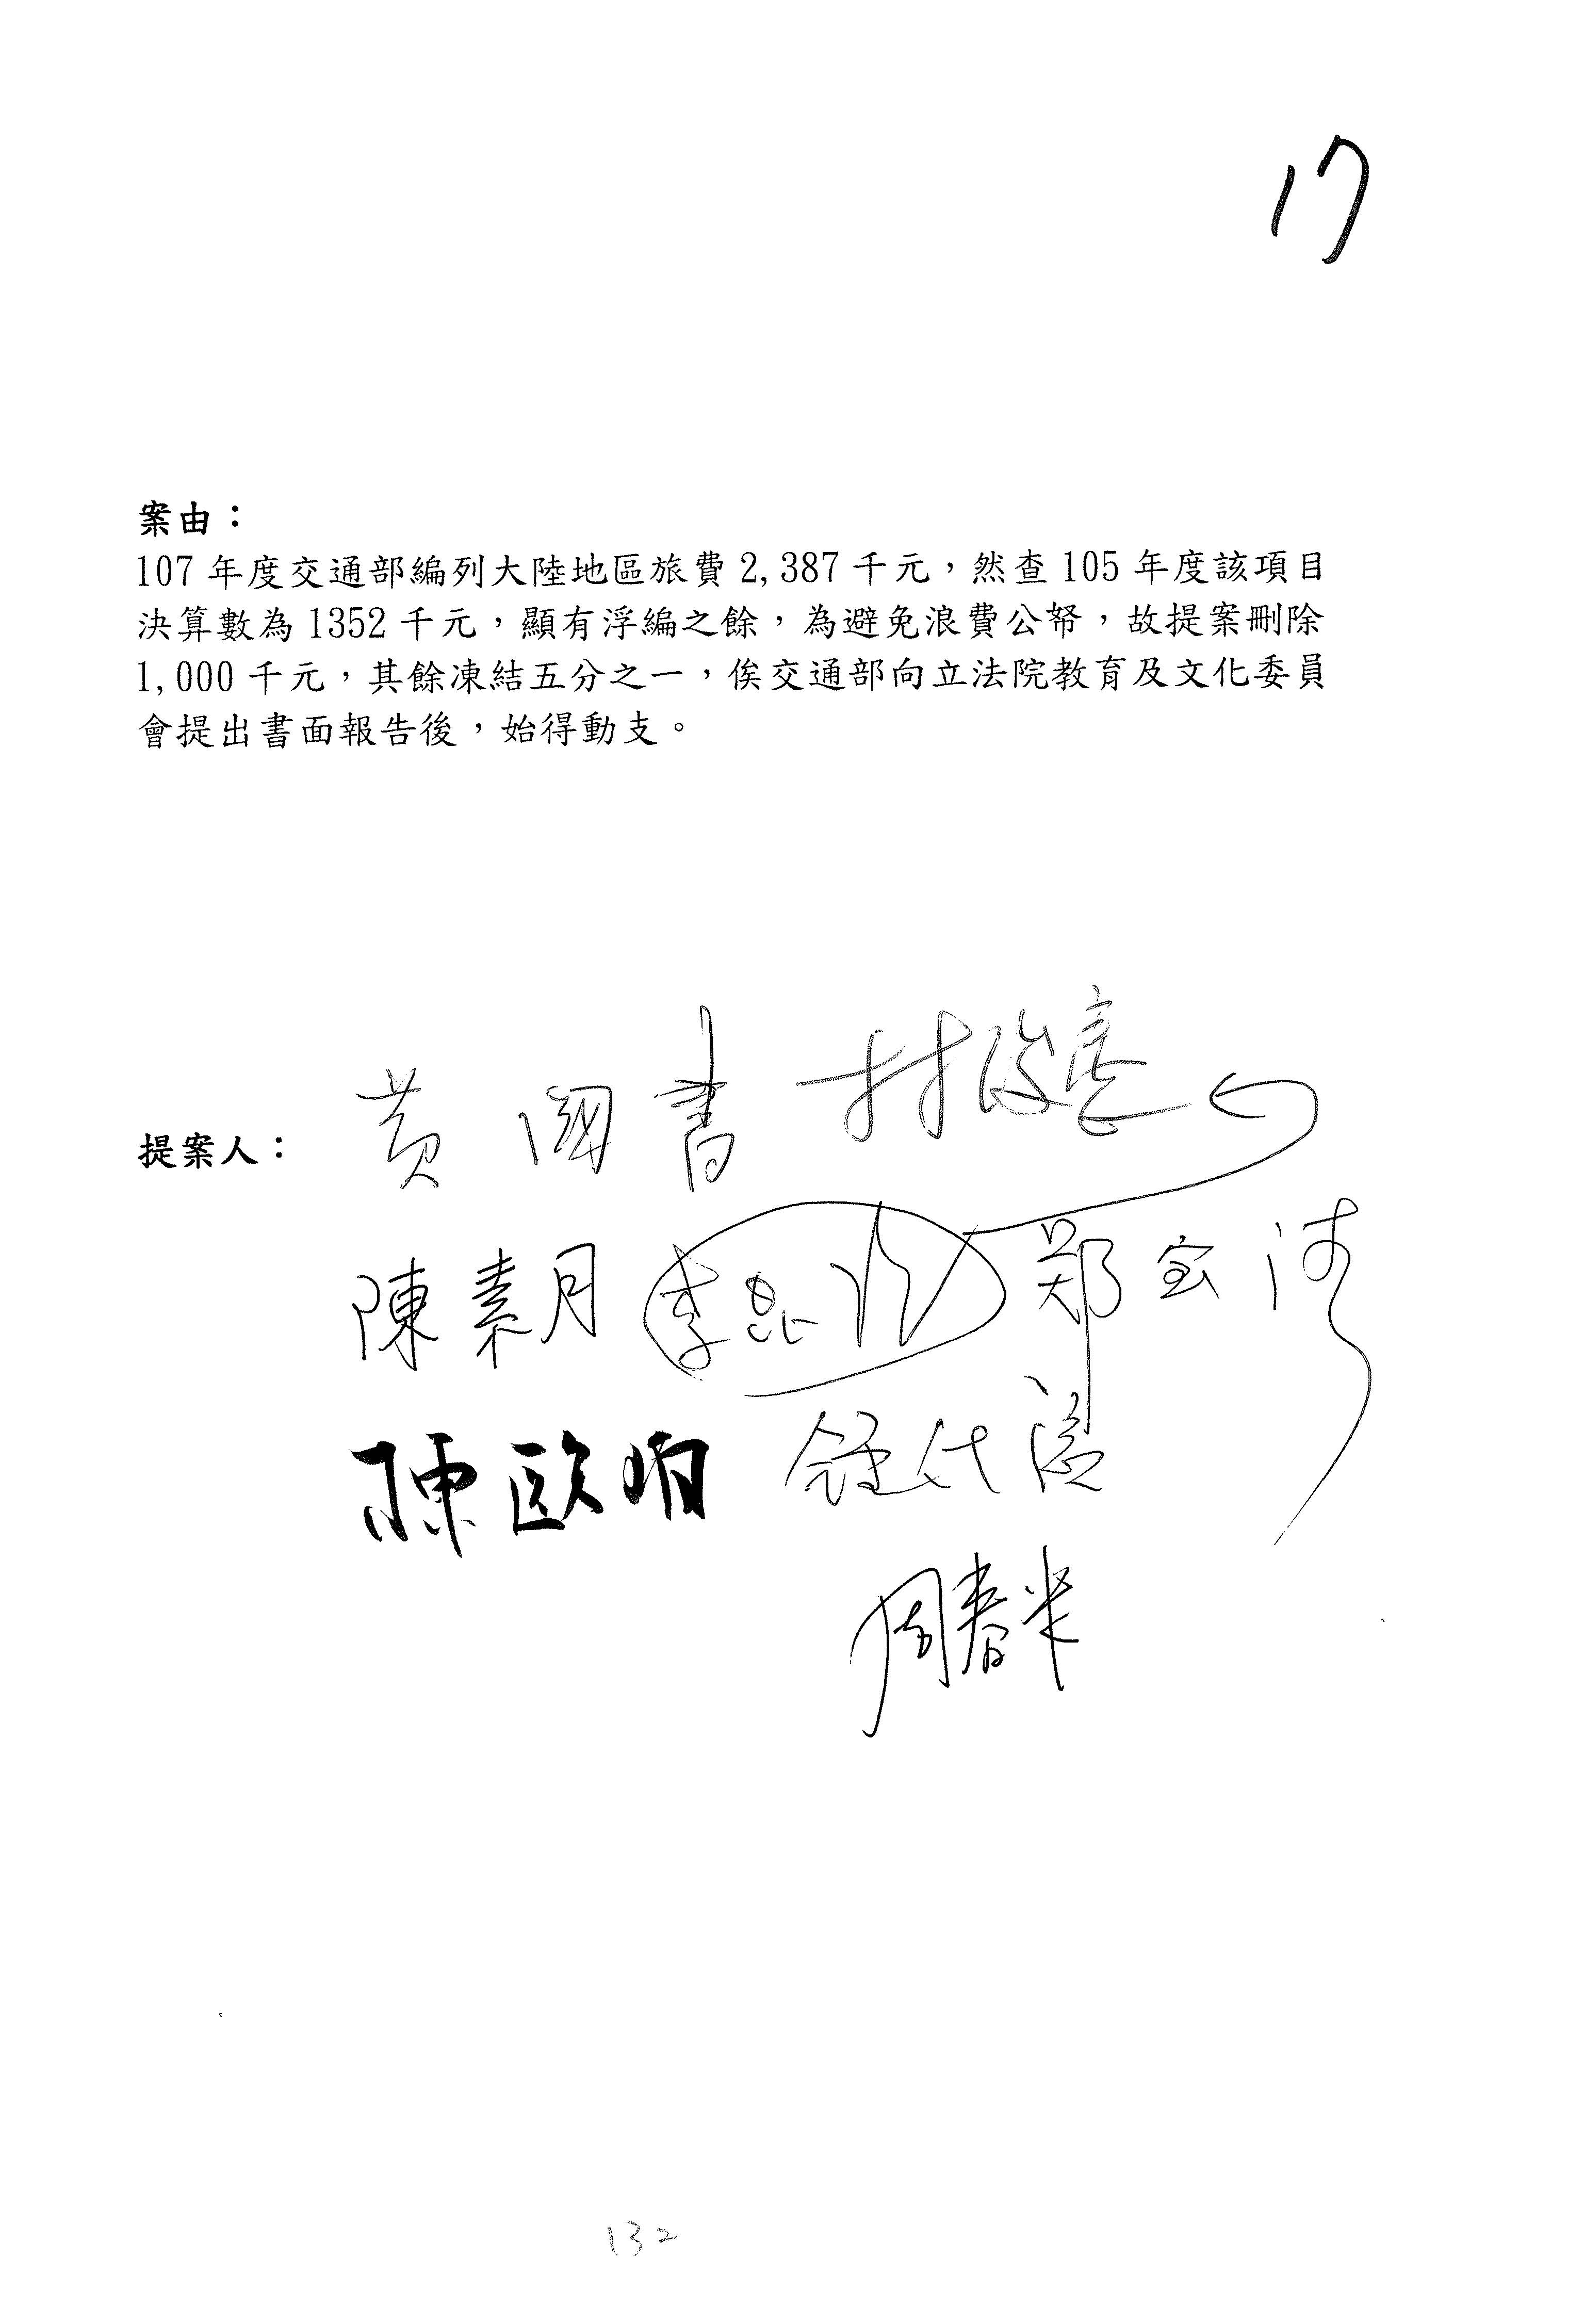 17
案由：
107 年度交通部編列大陸地區旅費 2,387 千元，然查 105 年度該項目
決算數為 1352 千元，顯有浮編之餘，為避免浪費公帑，故提案刪除
1,000 千元，其餘凍結五分之一，俟交通部向立法院教育及文化委員
會提出書面報告後，始得動支。
黃國書 林俊憲
提案人：
陳素月 李昆澤 鄭宝清
陳歐珀 鍾佳濱
周春米
132